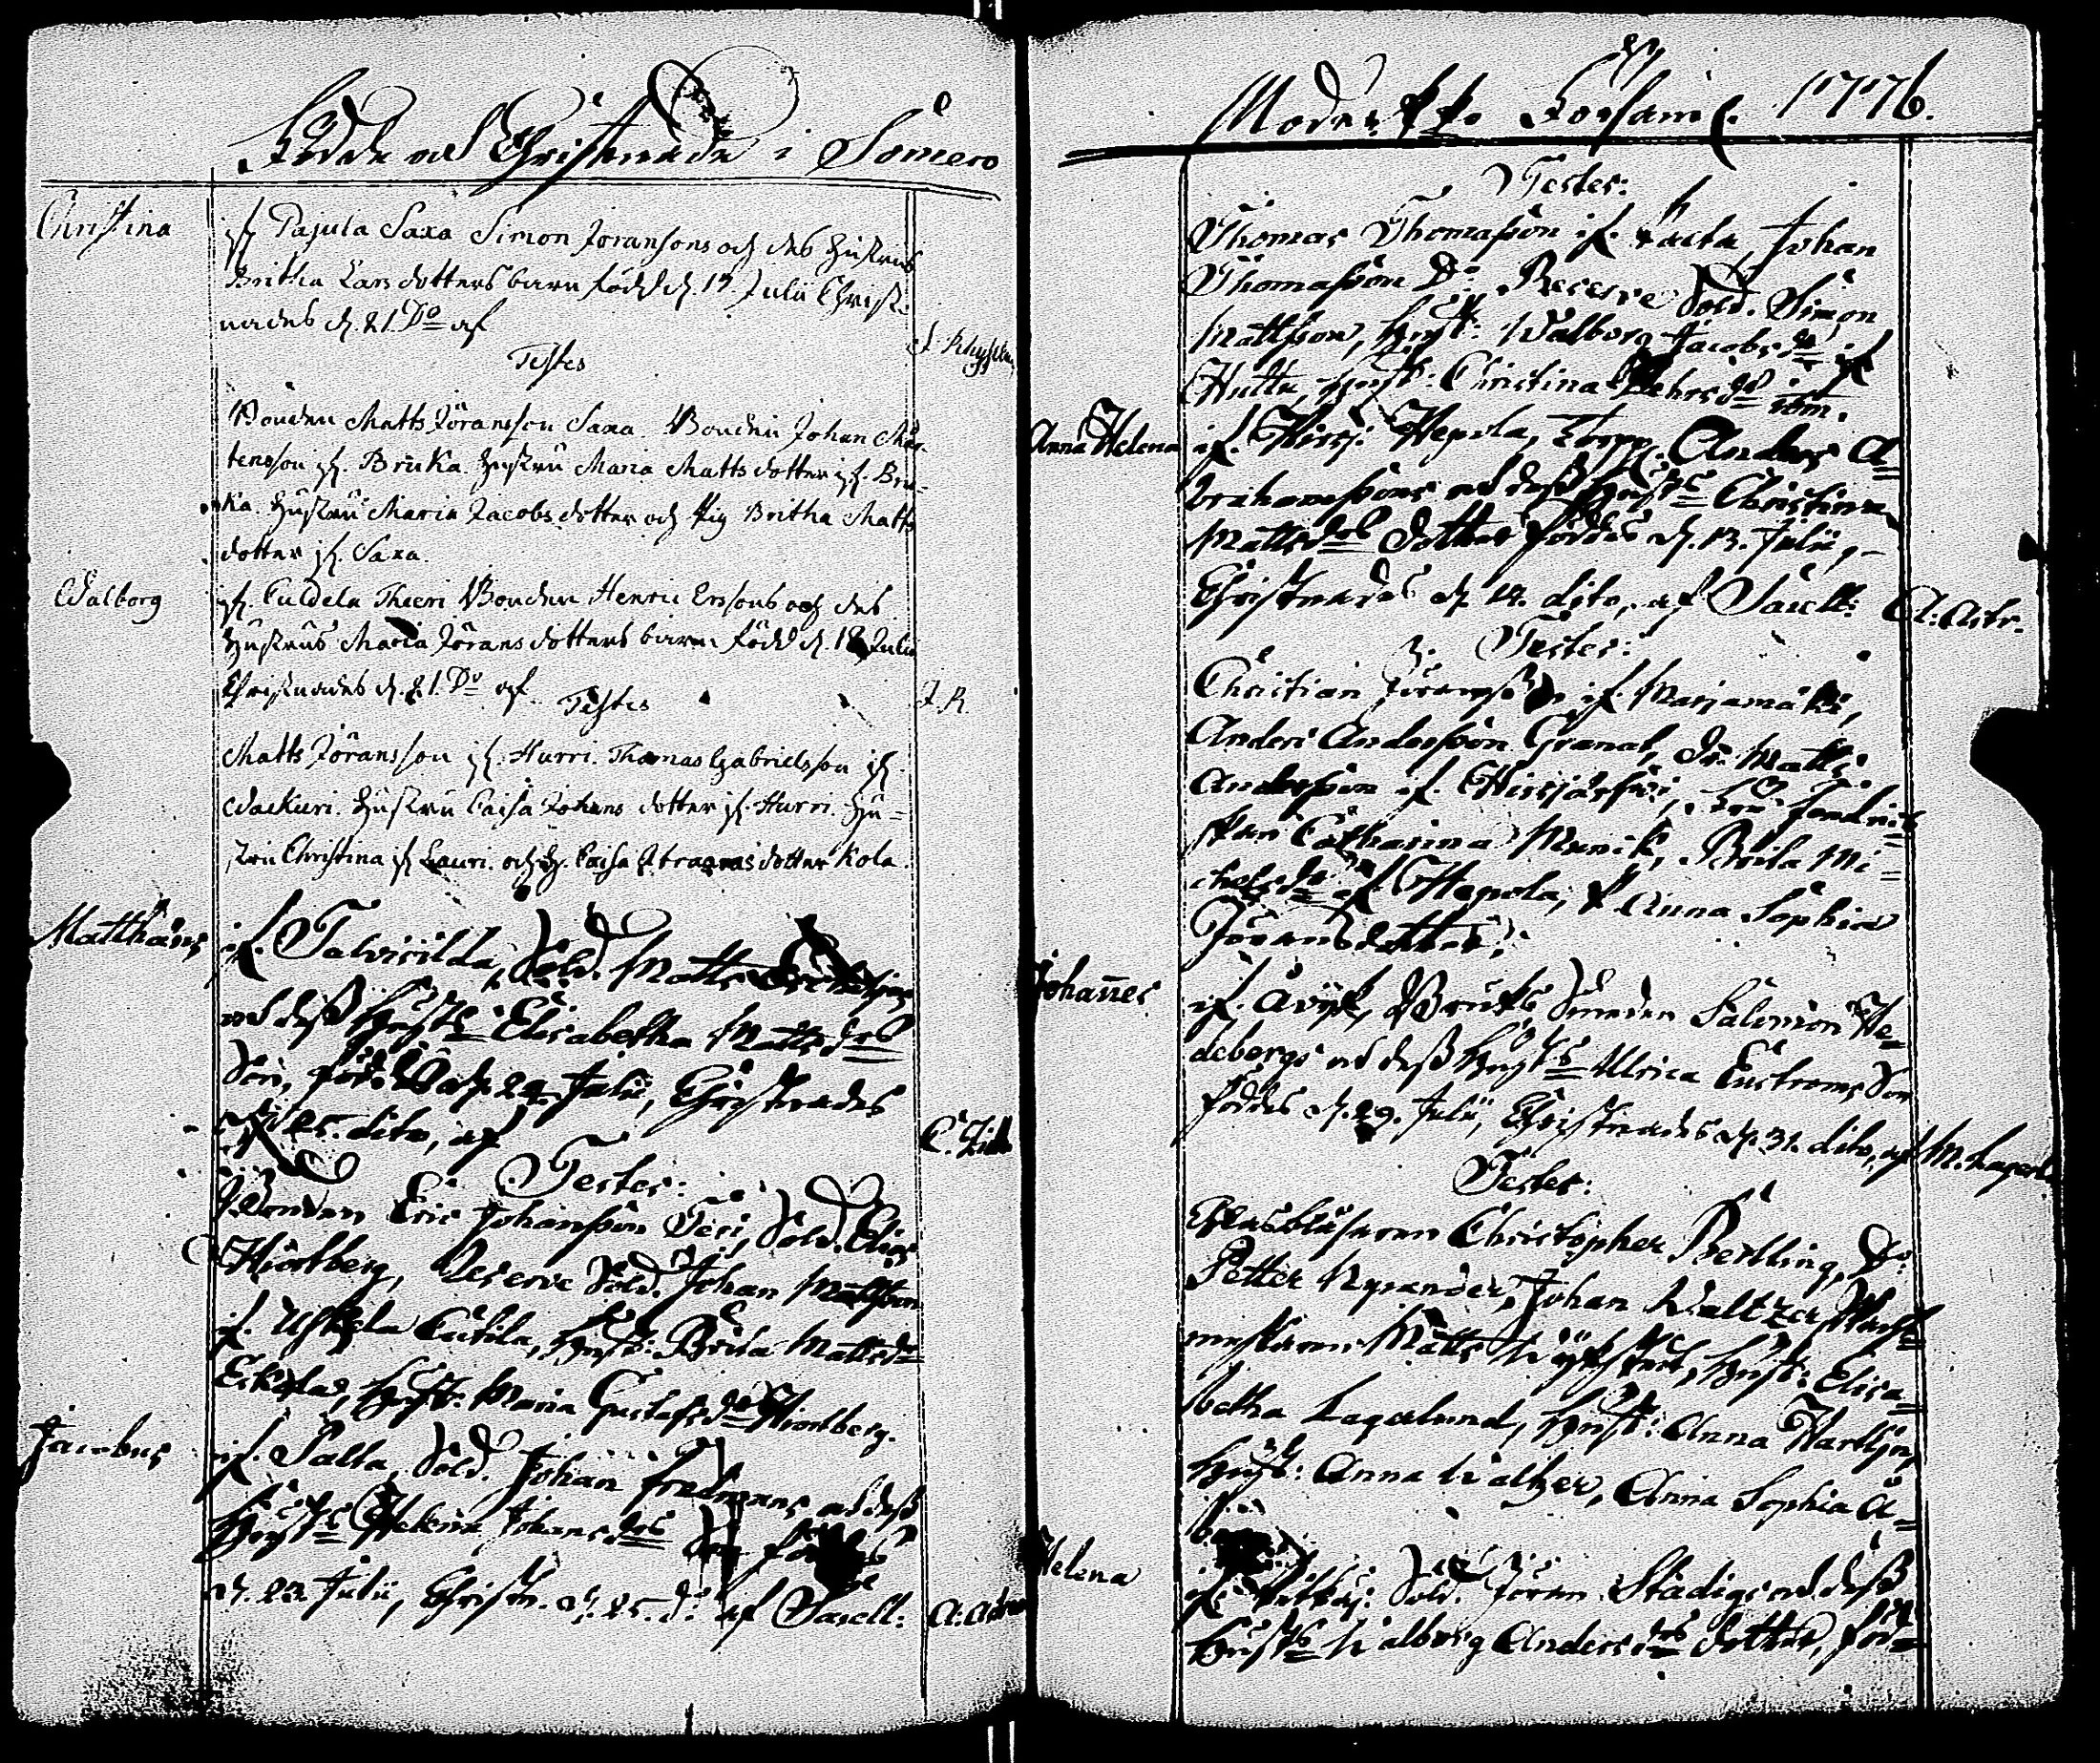 Födde och Christnade i Somero
Christina
ifr. Pajula Saxa Simon Jöranssons och des Hustrus
Britha Lars dotters barn född d. 17 Julii Christ-
nades d. 21. Do af
Testes
Bonden Matts Jöransson Saxa. Bonden Johan Mår-
tensson ifr. Bruka. Hustru Maria Matts dotter ifr. Bru-
ka. Hustru Maria Jacobs dotter och Pig Britha Matts
dotter ifr. Saxa.
Walborg
ifr. Culdela Theeri Bonden Henric Ersons och des
Hustrus Maria Jörans dotters barn född d. 18 Julii
Christnades d. 21. Do af
J. R.
Testes
Matts Jöransson ifr. Hurri. Thomas Gabrielsson ifr
Hustru Caisa Johans dotter ifr. Hurri. Hu-
stru Christina ifr Lauri. och Caisa dotter Kola.
Matthæus
ifr. Talvisilda, Sold. Matts
och dess Hustrs Elisabetha Mattsdrs
Son, föddes d. 24 Julii, Christnades
d. 25. dito, af
Testes:
Bonden Eric Johansson Teri, Sold. Elias
Hiortberg, Reserve Sold. Johan Mattsson
ifr. Uskela Cutila, Hust: Brita Mattsdr
Hust: Maria Gustafsdr Hiortberg.
Jacobus
ifr. Palta, Sold. Johan Fredmans och dess
Hustrs Helena Johansdrs Son
d. 23. Julii, Christn. d. 25. do af Sacell: A: Astr
Moder Kyrko Forsaml. 1776.
Testes:
Thomas Thomasson ifr. Johan
Thomasson Do Reserve Sold. Simon
Mattsson, Hust: Walborg Jacobsdr ifr
Hulta, Hust: Christina ibm.
Anna Helena
ifr. Hirsj: Hepola, Torp. Anders A=
brahamssons och dess Hustrs Christina
Mattsdrs Dotter föddes d. 13. Julii,
Christnades d. 14. dito, af Sacell: A: Astr.
Testes:
Christian Jöransson ifr. Marjamäki,
Anders Andersson Granat, Dr. Matts
Andersson ifr. Hirsjärfvi,
Catharina Munck, Brita Mi=
chelsdr ifr. Hepola, & Anna Sophia
Jöransdotter.
Johannes
ifr. Åvik, Bruks Smeden Salomon He=
debergs och dess Hustrs Ulrica Enströms Son
föddes d. 29. Julii, Christnades d. 31. dito, af M. Lagerl
Testes:
Glasblåsaren Christopher Bertling, Do
Petter Nyrander, Johan Waltzer,
mestaren Matts Hust: Elisa=
betha Lagerlund, Hust: Anna
Hust: Anna Waltzer, Anna Sophia Å=
Helena
Sold. Jöran Städigs och dess
Hustrs Walborg Andersdrs Dotter, föd=